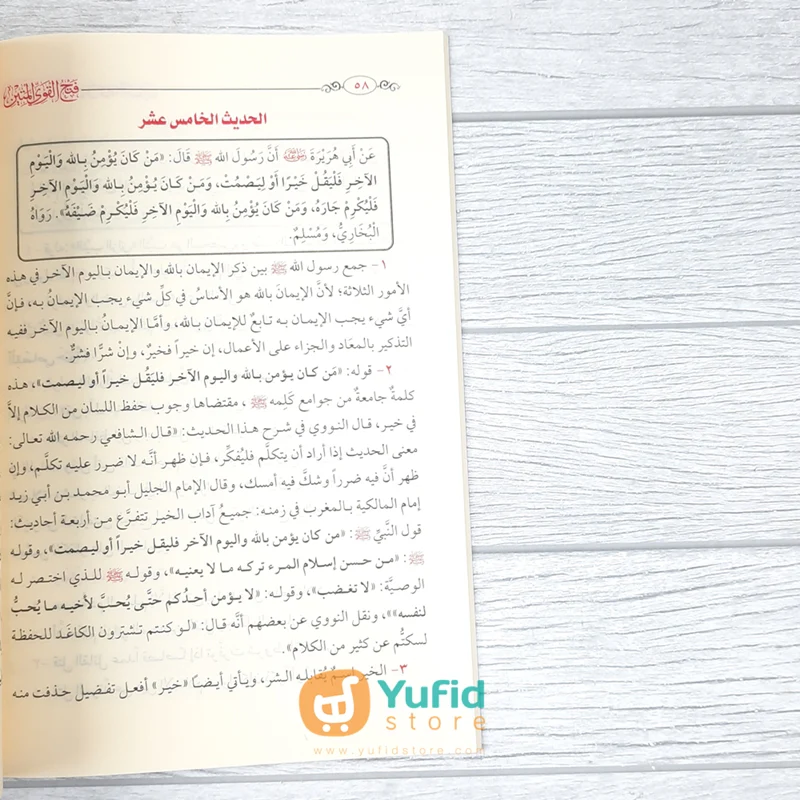 فتح القوي المتين
٥٨
الحديث الخامس عشر
عَنْ أَبِي هُرَيْرَةَ رضي الله عنه أَنَّ رَسُولَ الله ﷺ قَالَ: «مَنْ كَانَ يُؤْمِنُ بِالله وَالْيَوْمِ
الآخِرِ فَلْيَقُلْ خَيْرًا أَوْ لِيَصْمُتْ، وَمَنْ كَانَ يُؤْمِنُ بِالله وَالْيَوْمِ الآخِرِ
فَلْيُكْرِمْ جَارَهُ، وَمَنْ كَانَ يُؤْمِنُ بِالله وَالْيَوْمِ الآخِرِ فَلْيُكْرِمْ ضَيْفَهُ». رَوَاهُ
الْبُخَارِيُّ، وَمُسْلِمٌ.
١- جمع رسول الله ﷺ بين ذكر الإيمان بالله والإيمان باليوم الآخر في هذه
الأمور الثلاثة؛ لأنَّ الإيمانَ بالله هو الأساسُ في كلِّ شيء يجب الإيمانُ به، فإنَّ
أيَّ شيء يجب الإيمان به تابعٌ للإيمان بالله، وأمَّا الإيمانُ باليوم الآخر ففيه
التذكير بالمعَاد والجزاء على الأعمال، إن خيراً فخيرٌ، وإنْ شرًّا فشرٌّ.
٢- قوله: «مَن كان يؤمن بالله واليوم الآخر فليَقُل خيراً أو ليصمت»، هذه
كلمةٌ جامعةٌ من جوامع كَلِمه ﷺ، مقتضاها وجوب حفظ اللسان من الكلام إلاَّ
في خير، قال النووي في شرح هذا الحديث: «قال الشافعي رحمه الله تعالى:
معنى الحديث إذا أراد أن يتكلَّم فليُفكِّر، فإن ظهر أنَّه لا ضرر عليه تكلَّم، وإن
ظهر أنَّ فيه ضرراً وشكَّ فيه أمسك، وقال الإمام الجليل أبو محمد بن أبي زيد
إمام المالكية بالمغرب في زمنه: جميعُ آداب الخير تتفرَّع من أربعة أحاديث:
قول النَّبيِّ ﷺ: «من كان يؤمن بالله واليوم الآخر فليقل خيراً أو ليصمت»، وقوله
ﷺ: «من حسن إسلام المرء تركه ما لا يعنيه»، وقوله ﷺ للذي اختصر له
الوصيَّة: «لا تغضب»، وقوله: «لا يؤمن أحدُكم حتَّى يُحبَّ لأخيه ما يُحبُّ
لنفسه»»، ونقل النووي عن بعضهم أنَّه قال: «لو كنتم تشترون الكاغَد للحفظة
لسكتُّم عن كثير من الكلام».
٣- الخير اسمٌ يُقابله الشر، ويأتي أيضاً «خير» أفعل تفضيل حذفت منه
Yufid
store
www.yufidstore.com